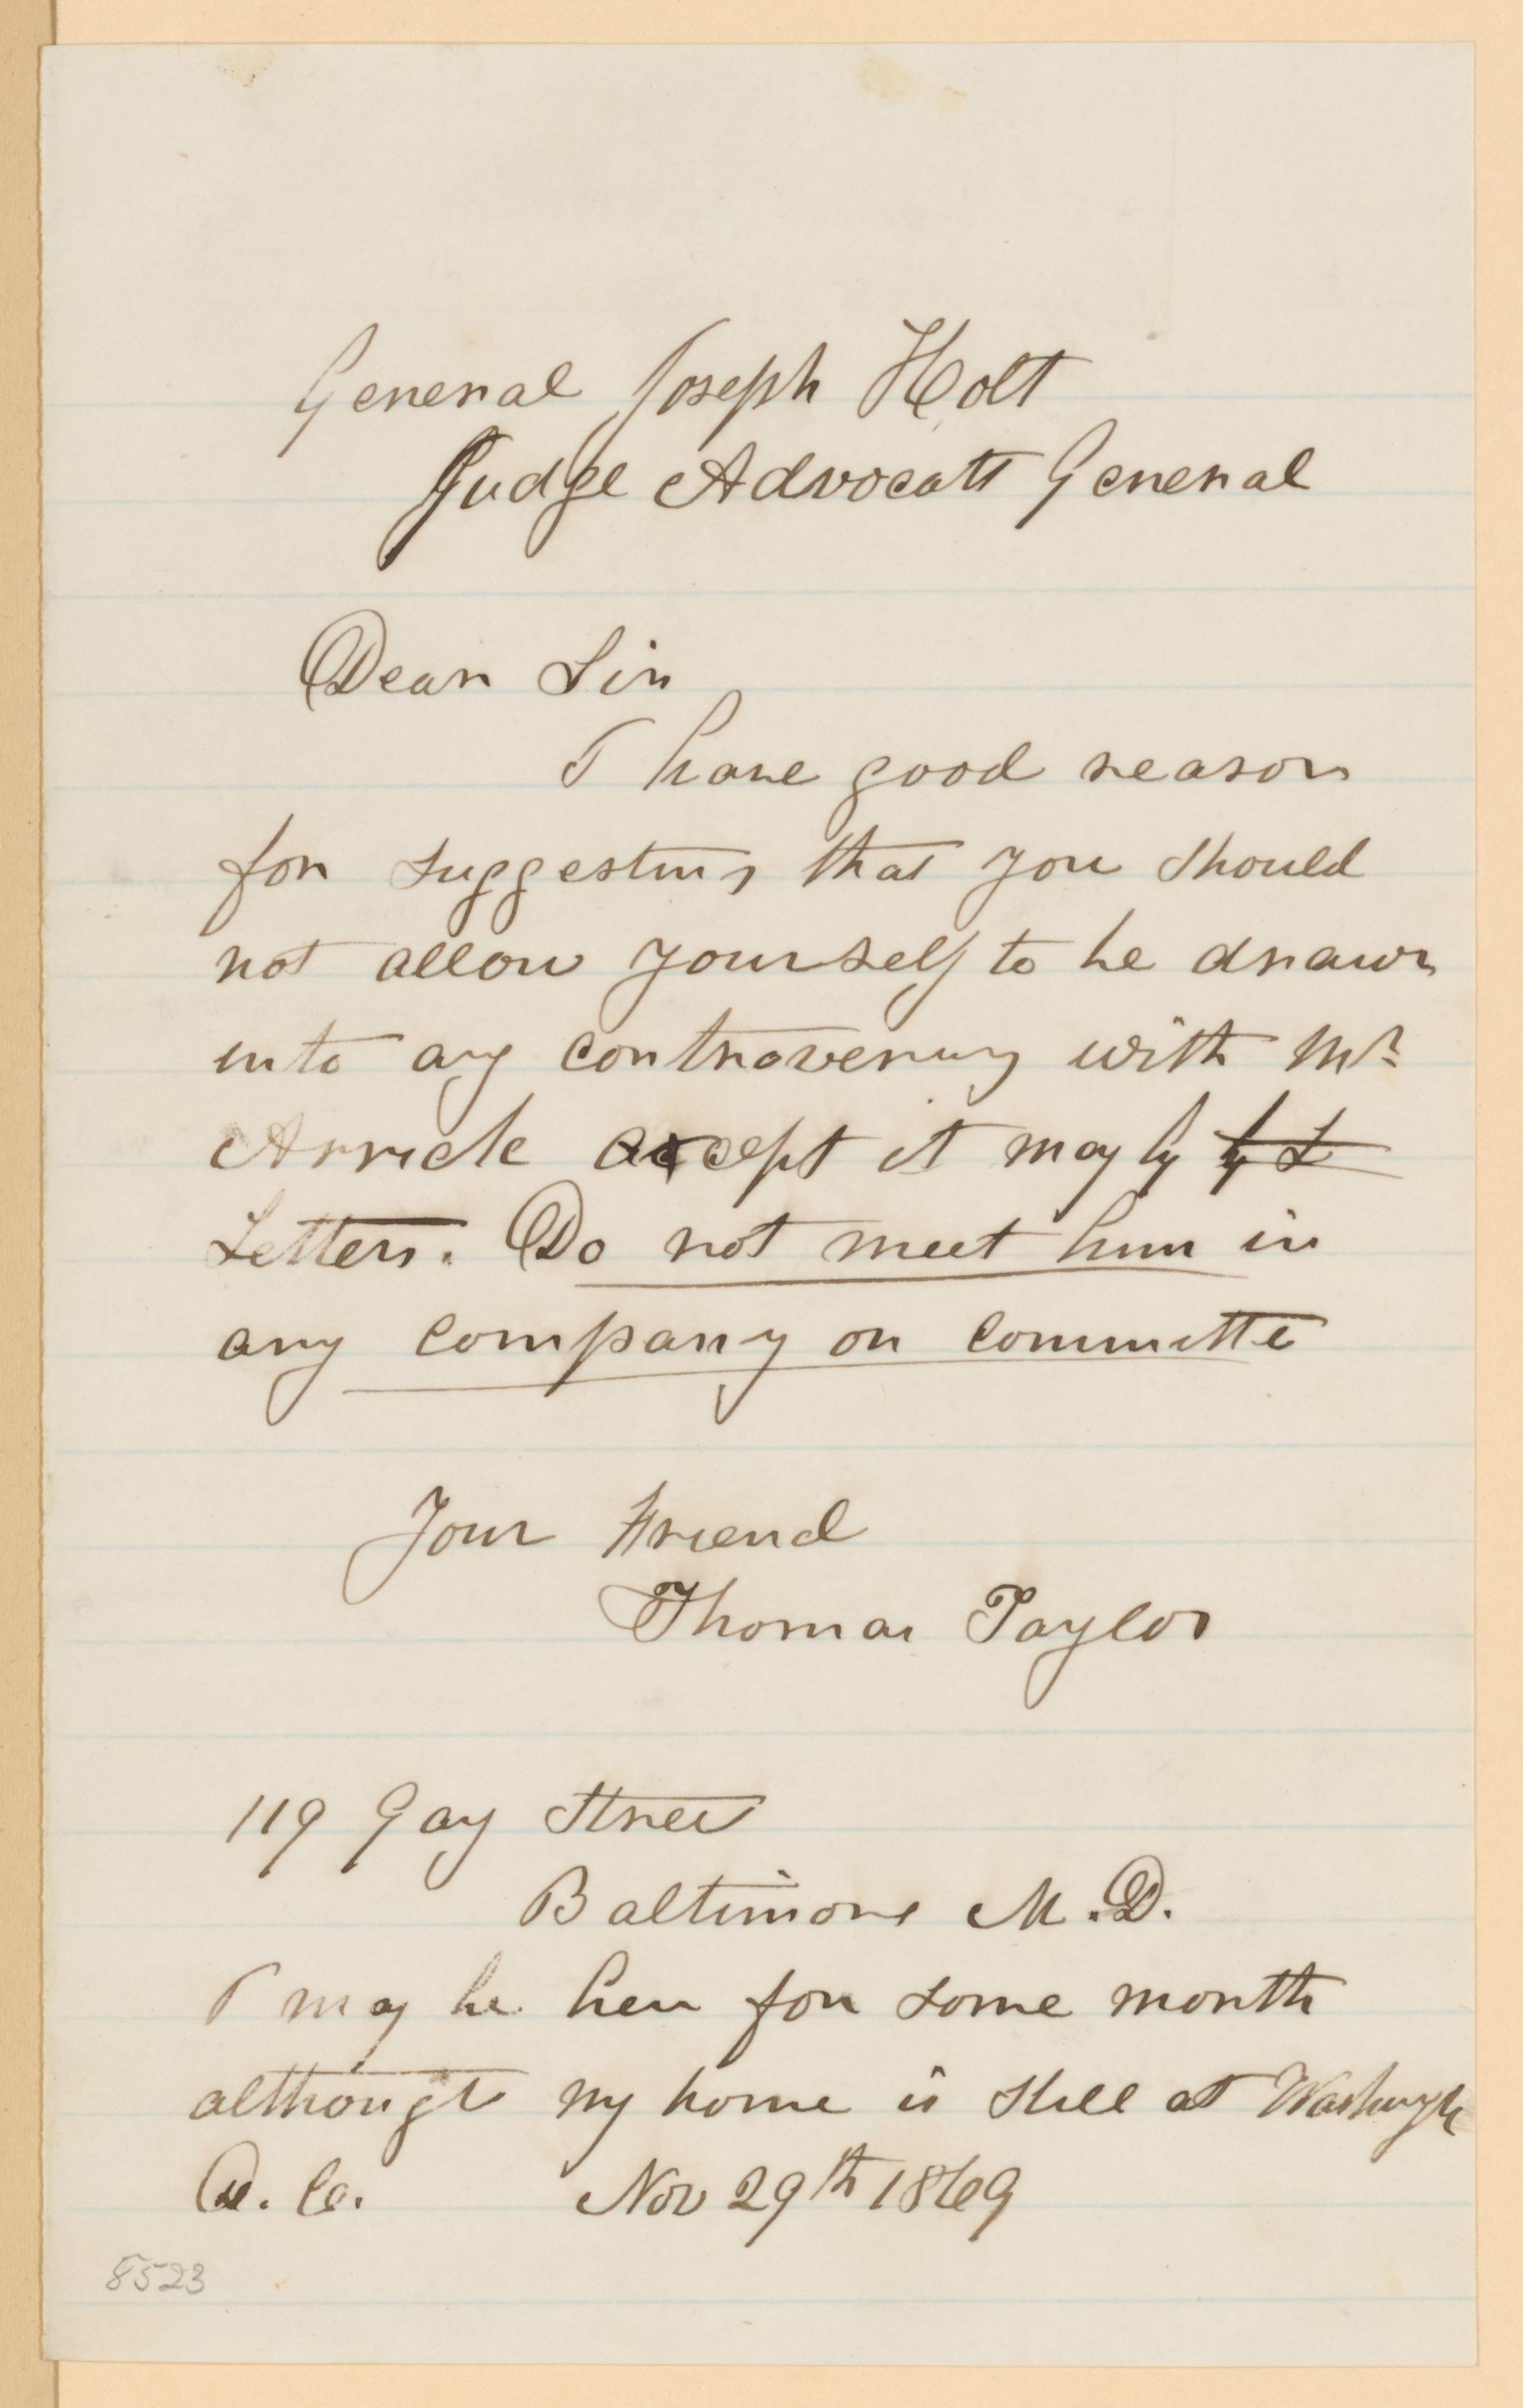 General Joseph Holt
Judge Advocate General
Dear Sir
I have good reason
for suggesting that you should
not allow yourself to be drawn
into any controversy with Mr
Arrick except it may by
Letters. Do not meet him in
any company or committe
Your Friend
Thomas Taylor
119 Gay Street
Baltimore M.D.
I may be here for some month
although my home is still at Washington
D. C. Nov 29th 1869
8523